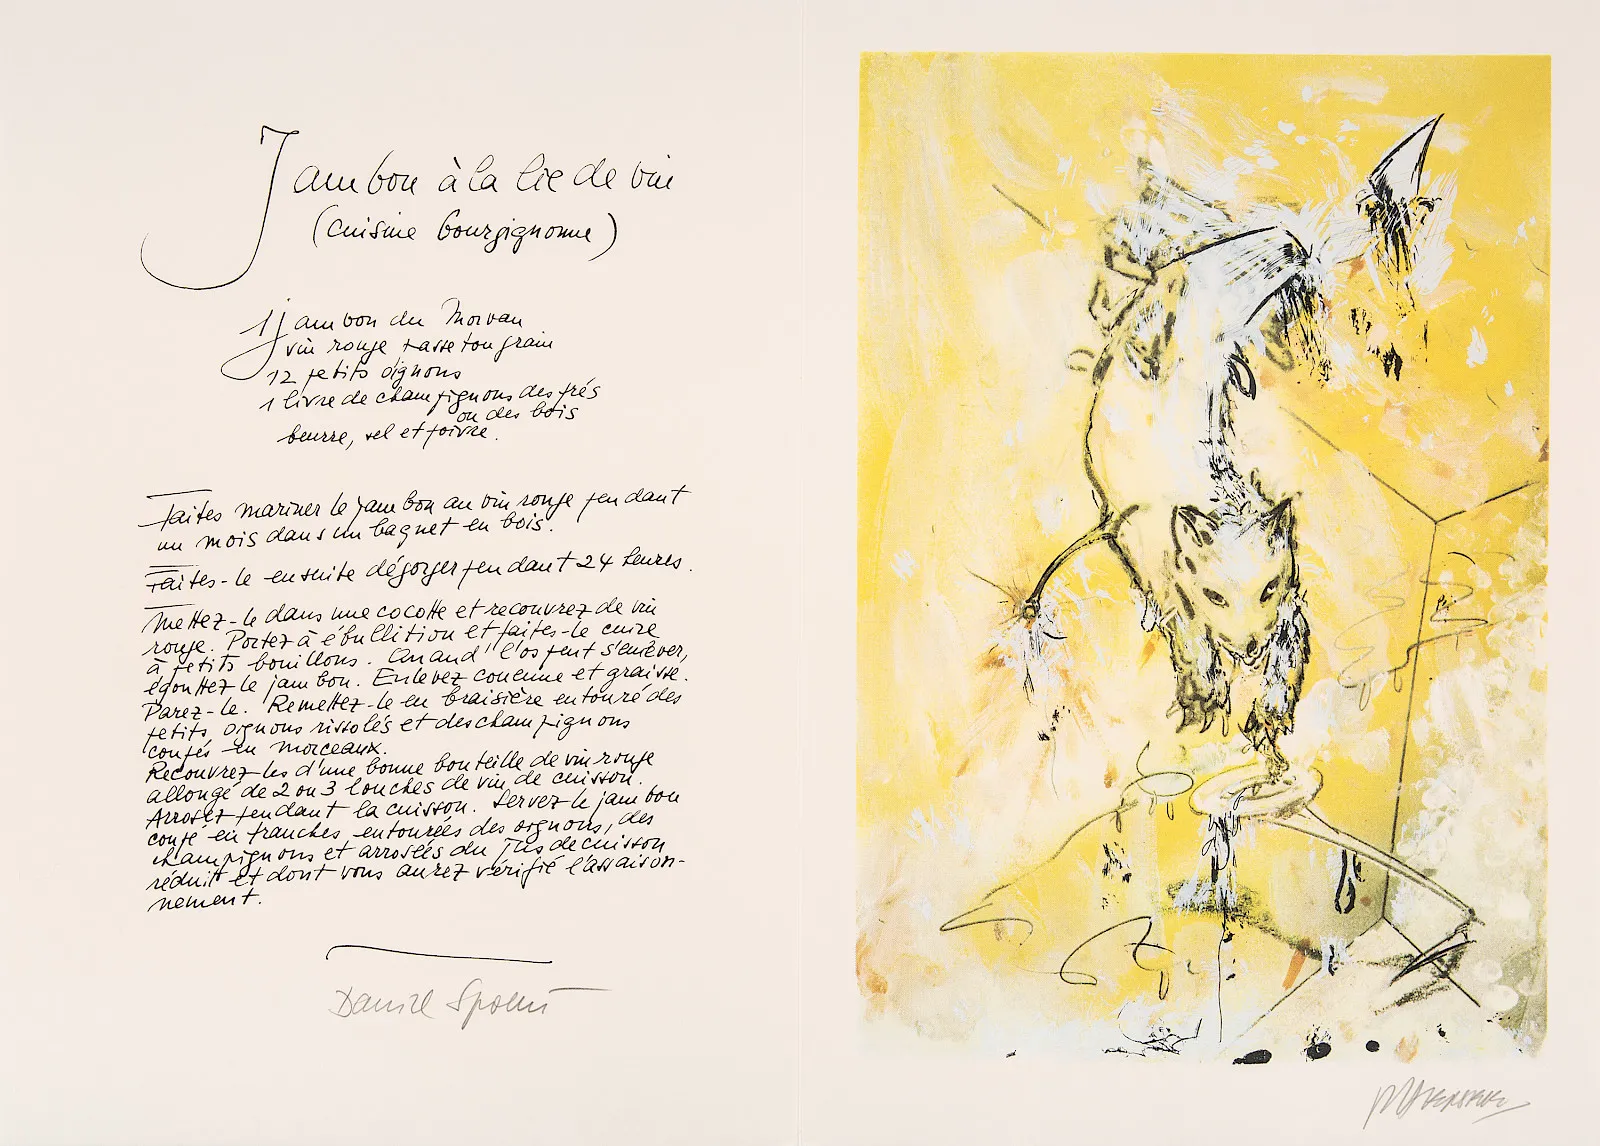 Jambon à la lie de vin
(cuisine bourguignonne)
1 jambon du Morvan
vin rouge tasse ton grain
12 petits oignons
1 livre de champignons des prés
ou des bois
beurre, sel et poivre.
Faites mariner le jambon au vin rouge pendant
un mois dans un baquet en bois.
Faites-le ensuite dégorger pendant 24 heures.
Mettez-le dans une cocotte et recouvrez de vin
rouge. Portez à ébullition et faites-le cuire
à petits bouillons. Quand l'os peut s'enlever,
égouttez le jambon. Enlevez couenne et graisse.
Parez-le. Remettez-le en braisière entouré des
petits oignons rissolés et des champignons
coupés en morceaux.
Recouvrez les d'une bonne bouteille de vin rouge
allongé de 2 ou 3 louches de vin de cuisson.
Arrosez pendant la cuisson. Servez le jambon
coupé en tranches, entourées des oignons, des
champignons et arrosées du jus de cuisson
réduit et dont vous aurez vérifié l'assaison-
nement.
Daniel Spoerri